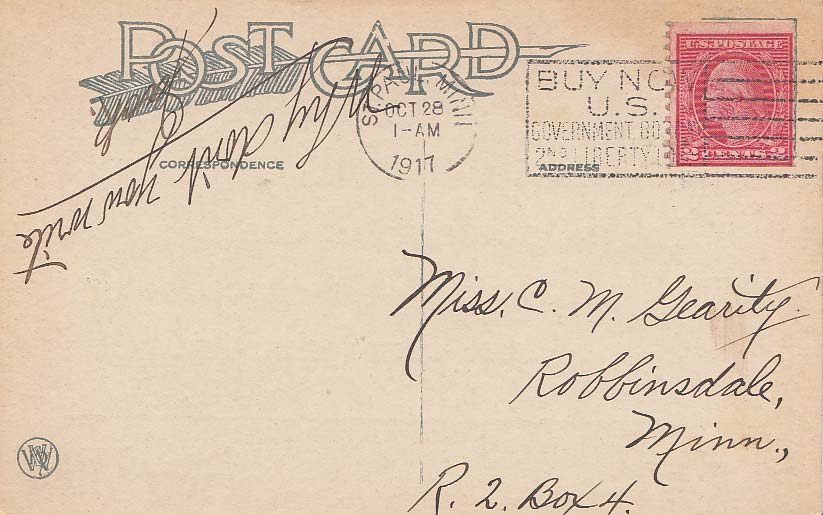 POST CARD
ST. PAUL, MINN
OCT 28
1-AM
1917
BUY NO
U.S.
GOVERNMENT BO
2ND LIBERTY
U.S. POSTAGE
2 CENTS 2
CORRESPONDENCE
ADDRESS
Why don't you write
Miss. C. M. Gearity.
Robbinsdale,
Minn.,
R. 2. Box 4.